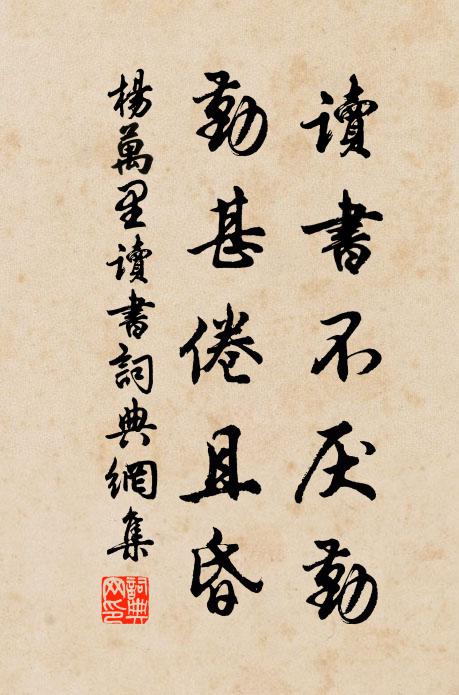 讀書不厌勤
勤甚倦且昏
楊萬里讀書詞典網集
詞典
网印